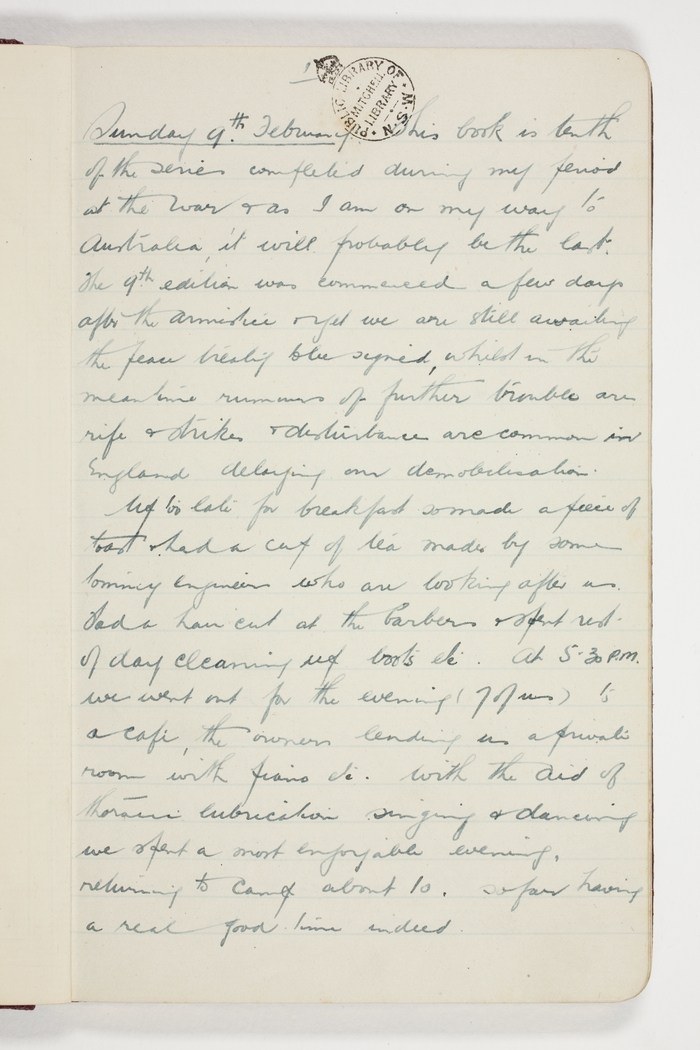 1
PUBLIC LIBRARY OF N.S.W.
MITCHELL LIBRARY
Sunday 9th. February This book is tenth
of the series completed during my period
at the war & as I am on my way to
Australia, it will probably be the last.
The 9th edition was commenced a few days
after the armistice & yet we are still awaiting
the peace treaty to be signed, whilst in the
meantime rumours of further trouble are
rife & strikes & disturbance are common in
England delaying our demobilisation.
Up to late for breakfast so made a piece of
toast & had a cup of tea made by some
tommy engineers who are looking after us.
Had a hair cut at the barbers & spent rest
of day cleaning up boots etc. At 5-30 P.M.
we went out for the evening (7 of us) to
a cafe, the owners lending us a private
room with piano etc. With the aid of
thoracic lubrication singing & dancing
we spent a most enjoyable evening,
returning to camp about 10. So far having
a real good time indeed.